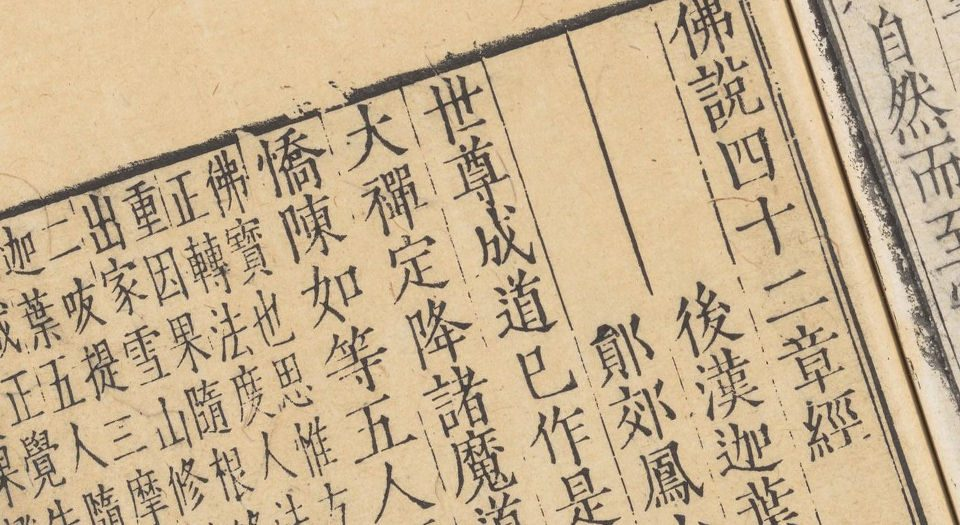 自然而至
佛說四十二章經
後漢迦葉
鄖郊鳳
世尊成道已作是
大禪定降諸魔道
憍陳如等五人
佛寶也思惟
正轉法度人法
重因果隨根
出家雪山修
二䟦提三摩
迦葉五人隨
正覺